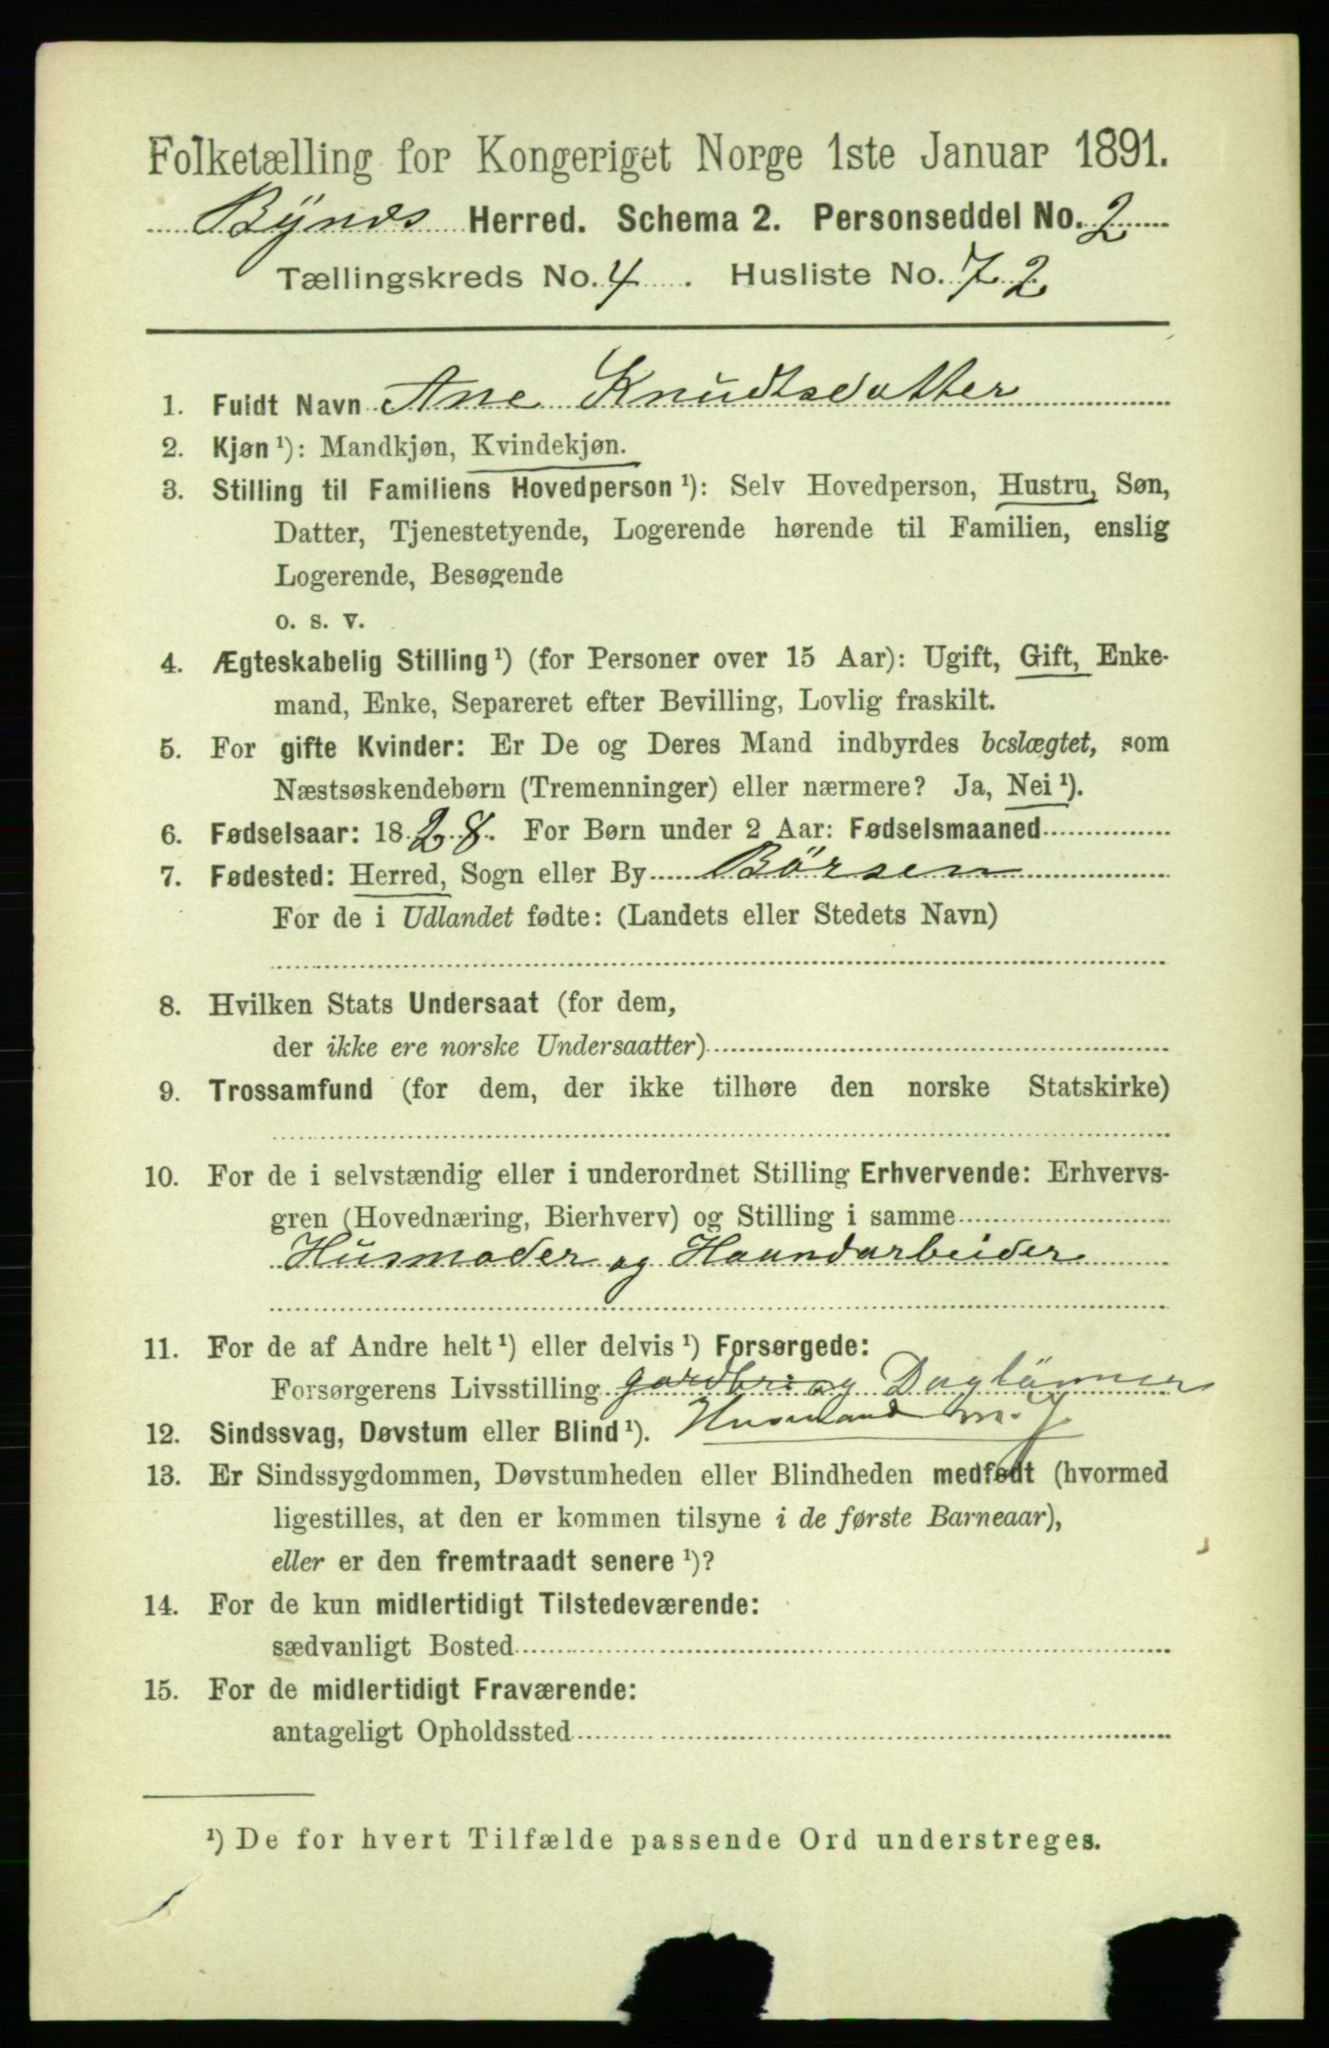 Folketælling for Kongeriget Norge 1ste Januar 1891.
Bynes Herred. Schema 2. Personseddel No. 2
Tællingskreds No. 4. Husliste No. 72
1. Fuldt Navn Ane Knudtsdatter
2. Kjøn ¹): Mandkjøn, Kvindekjøn.
3. Stilling til Familiens Hovedperson ¹): Selv Hovedperson, Hustru, Søn,
Datter, Tjenestetyende, Logerende hørende til Familien, enslig
Logerende, Besøgende
o. s. v.
4. Ægteskabelig Stilling ¹) (for Personer over 15 Aar): Ugift, Gift, Enke-
mand, Enke, Separeret efter Bevilling, Lovlig fraskilt.
5. For gifte Kvinder: Er De og Deres Mand indbyrdes beslægtet, som
Næstsøskendebørn (Tremenninger) eller nærmere? Ja, Nei ¹).
6. Fødselsaar: 1828. For Børn under 2 Aar: Fødselsmaaned
7. Fødested: Herred, Sogn eller By Börsen
For de i Udlandet fødte: (Landets eller Stedets Navn)
8. Hvilken Stats Undersaat (for dem,
der ikke ere norske Undersaatter)
9. Trossamfund (for dem, der ikke tilhøre den norske Statskirke)
10. For de i selvstændig eller i underordnet Stilling Erhvervende: Erhvervs-
gren (Hovednæring, Bierhverv) og Stilling i samme
Husmoder og Haandarbeider
11. For de af Andre helt ¹) eller delvis ¹) Forsørgede:
Forsørgerens Livsstilling og Daglönner
Husmand m. J.
12. Sindssvag, Døvstum eller Blind ¹).
13. Er Sindssygdommen, Døvstumheden eller Blindheden medfødt (hvormed
ligestilles, at den er kommen tilsyne i de første Barneaar),
eller er den fremtraadt senere ¹)?
14. For de kun midlertidigt Tilstedeværende:
sædvanligt Bosted
15. For de midlertidigt Fraværende:
antageligt Opholdssted
¹) De for hvert Tilfælde passende Ord understreges.